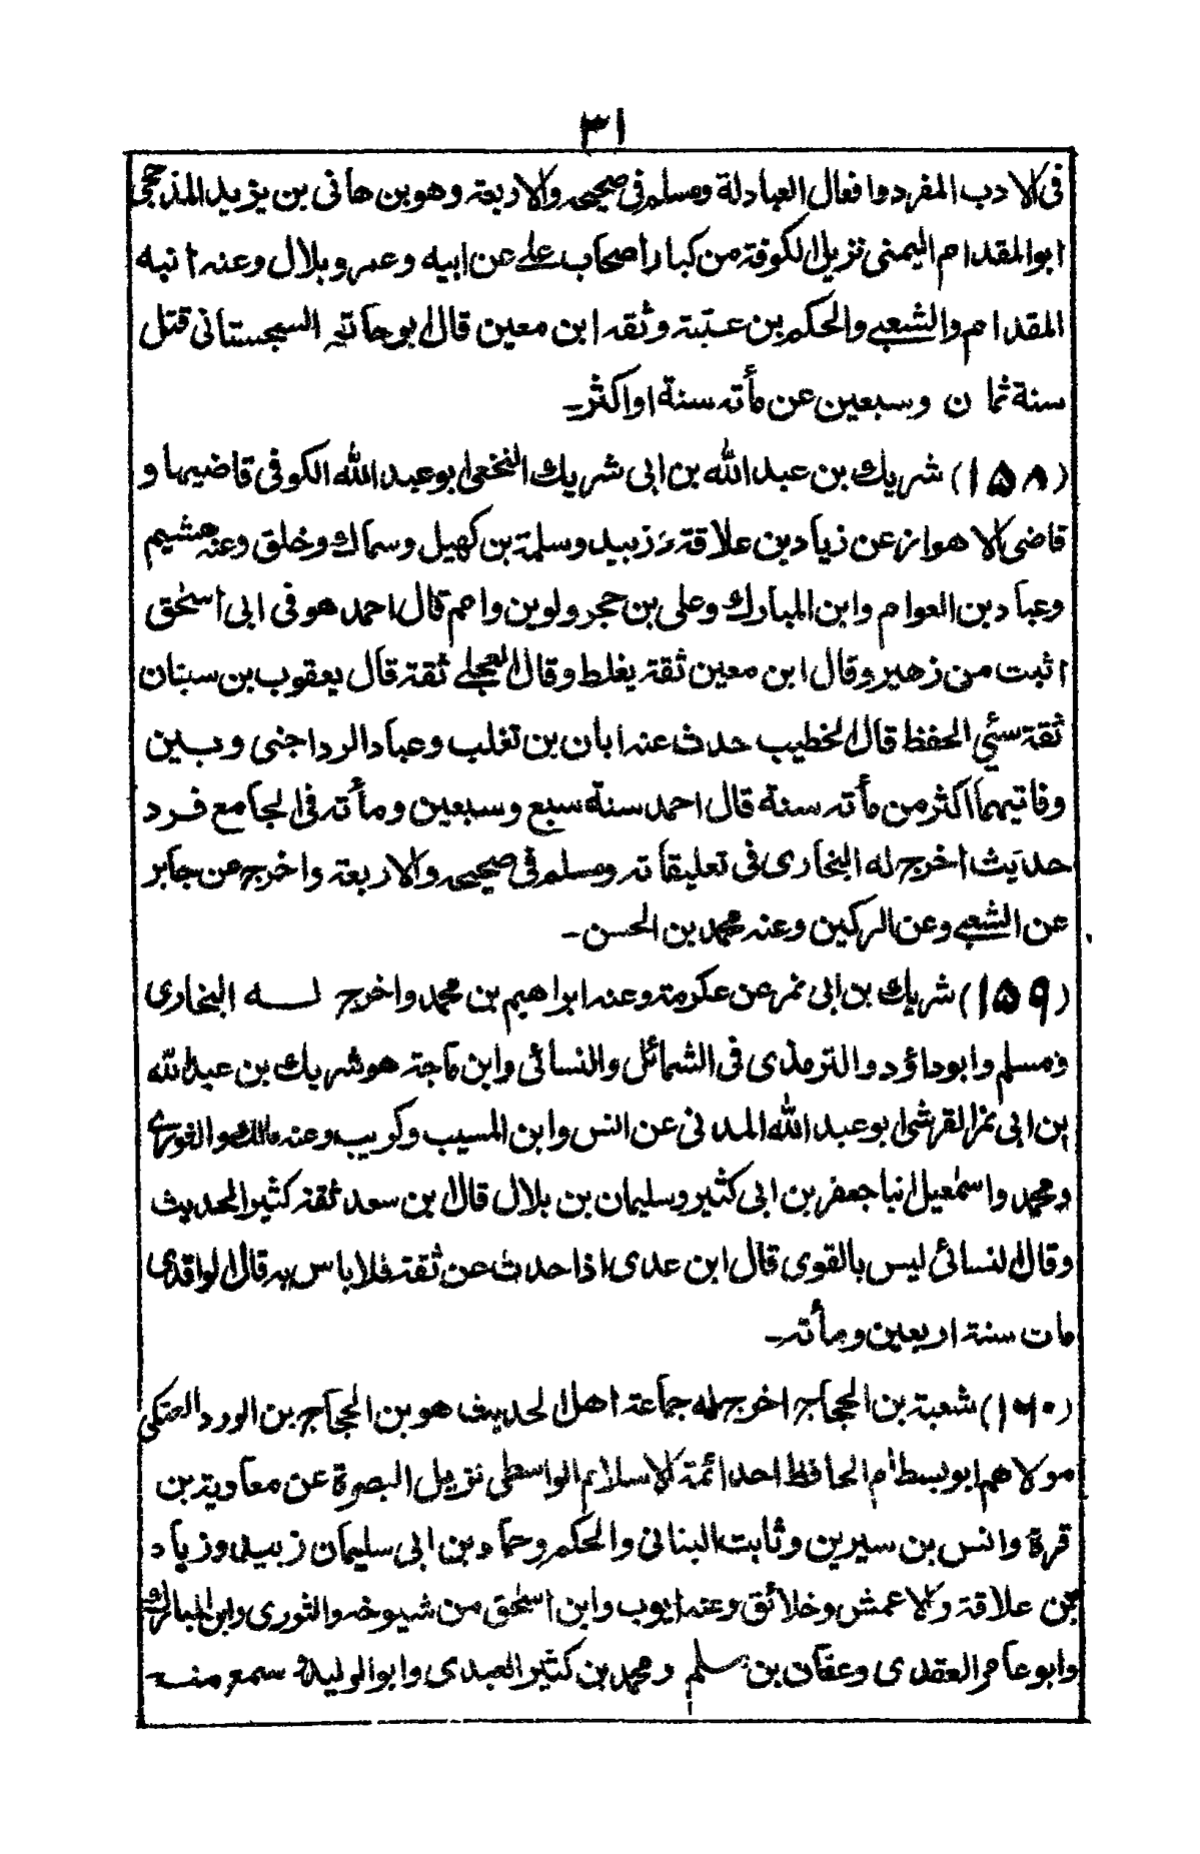 ٣١
فى الادب المفرد وافعال العبادلة ومسلم فى صحيحه والاربعة وهو بن هانى بن يزيد المذحجى
ابوالمقدام اليمنى نزيل الكوفة من كبار اصحاب على عن ابيه وعمر وبلال وعنه ابنه
المقدام والشعبى والحكم بن عتبة وثقه ابن معين قال ابو حاتم السجستانى قتل
سنة ثمان وسبعين عن مأته سنة اواكثر۔
(١٥٨) شريك بن عبد الله بن ابى شريك النخعى ابو عبد الله الكوفى قاضيها و
قاضى الاهواز عن زياد بن علاقة وزبيد وسلمة بن كهيل وسماك وخلق وعنه هشيم
وعباد بن العوام وابن المبارك وعلى بن حجر ولوين وامم قال احمد هو فى ابى اسحٰق
اثبت من زهير وقال ابن معين ثقة يغلط وقال العجلى ثقة قال يعقوب بن سنان
ثقة سئي الحفظ قال الخطيب حدث عنه ابان بن تغلب وعباد الرداجنى وبين
وفاتيهما اكثر من مأته سنة قال احمد سنة سبع وسبعين ومأته فى الجامع فرد
حديث اخرج له البخارى فى تعليقاته ومسلم فى صحيحه والاربعة واخرج عن جابر
عن الشعبى وعن الركين وعنه محمد بن الحسن۔
(١٥٩) شريك بن ابى نمر عن عكرمة وعنه ابراهيم بن محمد واخرج له البخارى
ومسلم وابوداؤد والترمذى فى الشمائل والنسائى وابن ماجة هو شريك بن عبد الله
بن ابى نمر القرشى ابو عبد الله المدنى عن انس وابن المسيب وكريب وعنه مالك والثورى
ومحمد واسمٰعيل انبا جعفر بن ابى كثير وسليمان بن بلال قال ابن سعد ثقة كثير الحديث
وقال النسائى ليس بالقوى قال ابن عدى اذا حدث عن ثقة فلا باس به قال الواقدى
مات سنة اربعين ومأته۔
(١٦٠) شعبة بن الحجاج اخرج له جماعة اهل الحديث هو بن الحجاج بن الورد العتكى
مولاهم ابو بسطام الحافظ احد ائمة الاسلام الواسطى نزيل البصرة عن معاوية بن
قرة وانس بن سيرين وثابت البنانى والحكم وحماد بن ابى سليمان زبيد وزياد
بن علاقة والاعمش وخلائق وعنه ايوب وابن اسحٰق من شيوخه والثورى وابن المبارك
وابو عامر العقدى وعفان بن مسلم ومحمد بن كثير العبدى وابو الوليد سمع منه